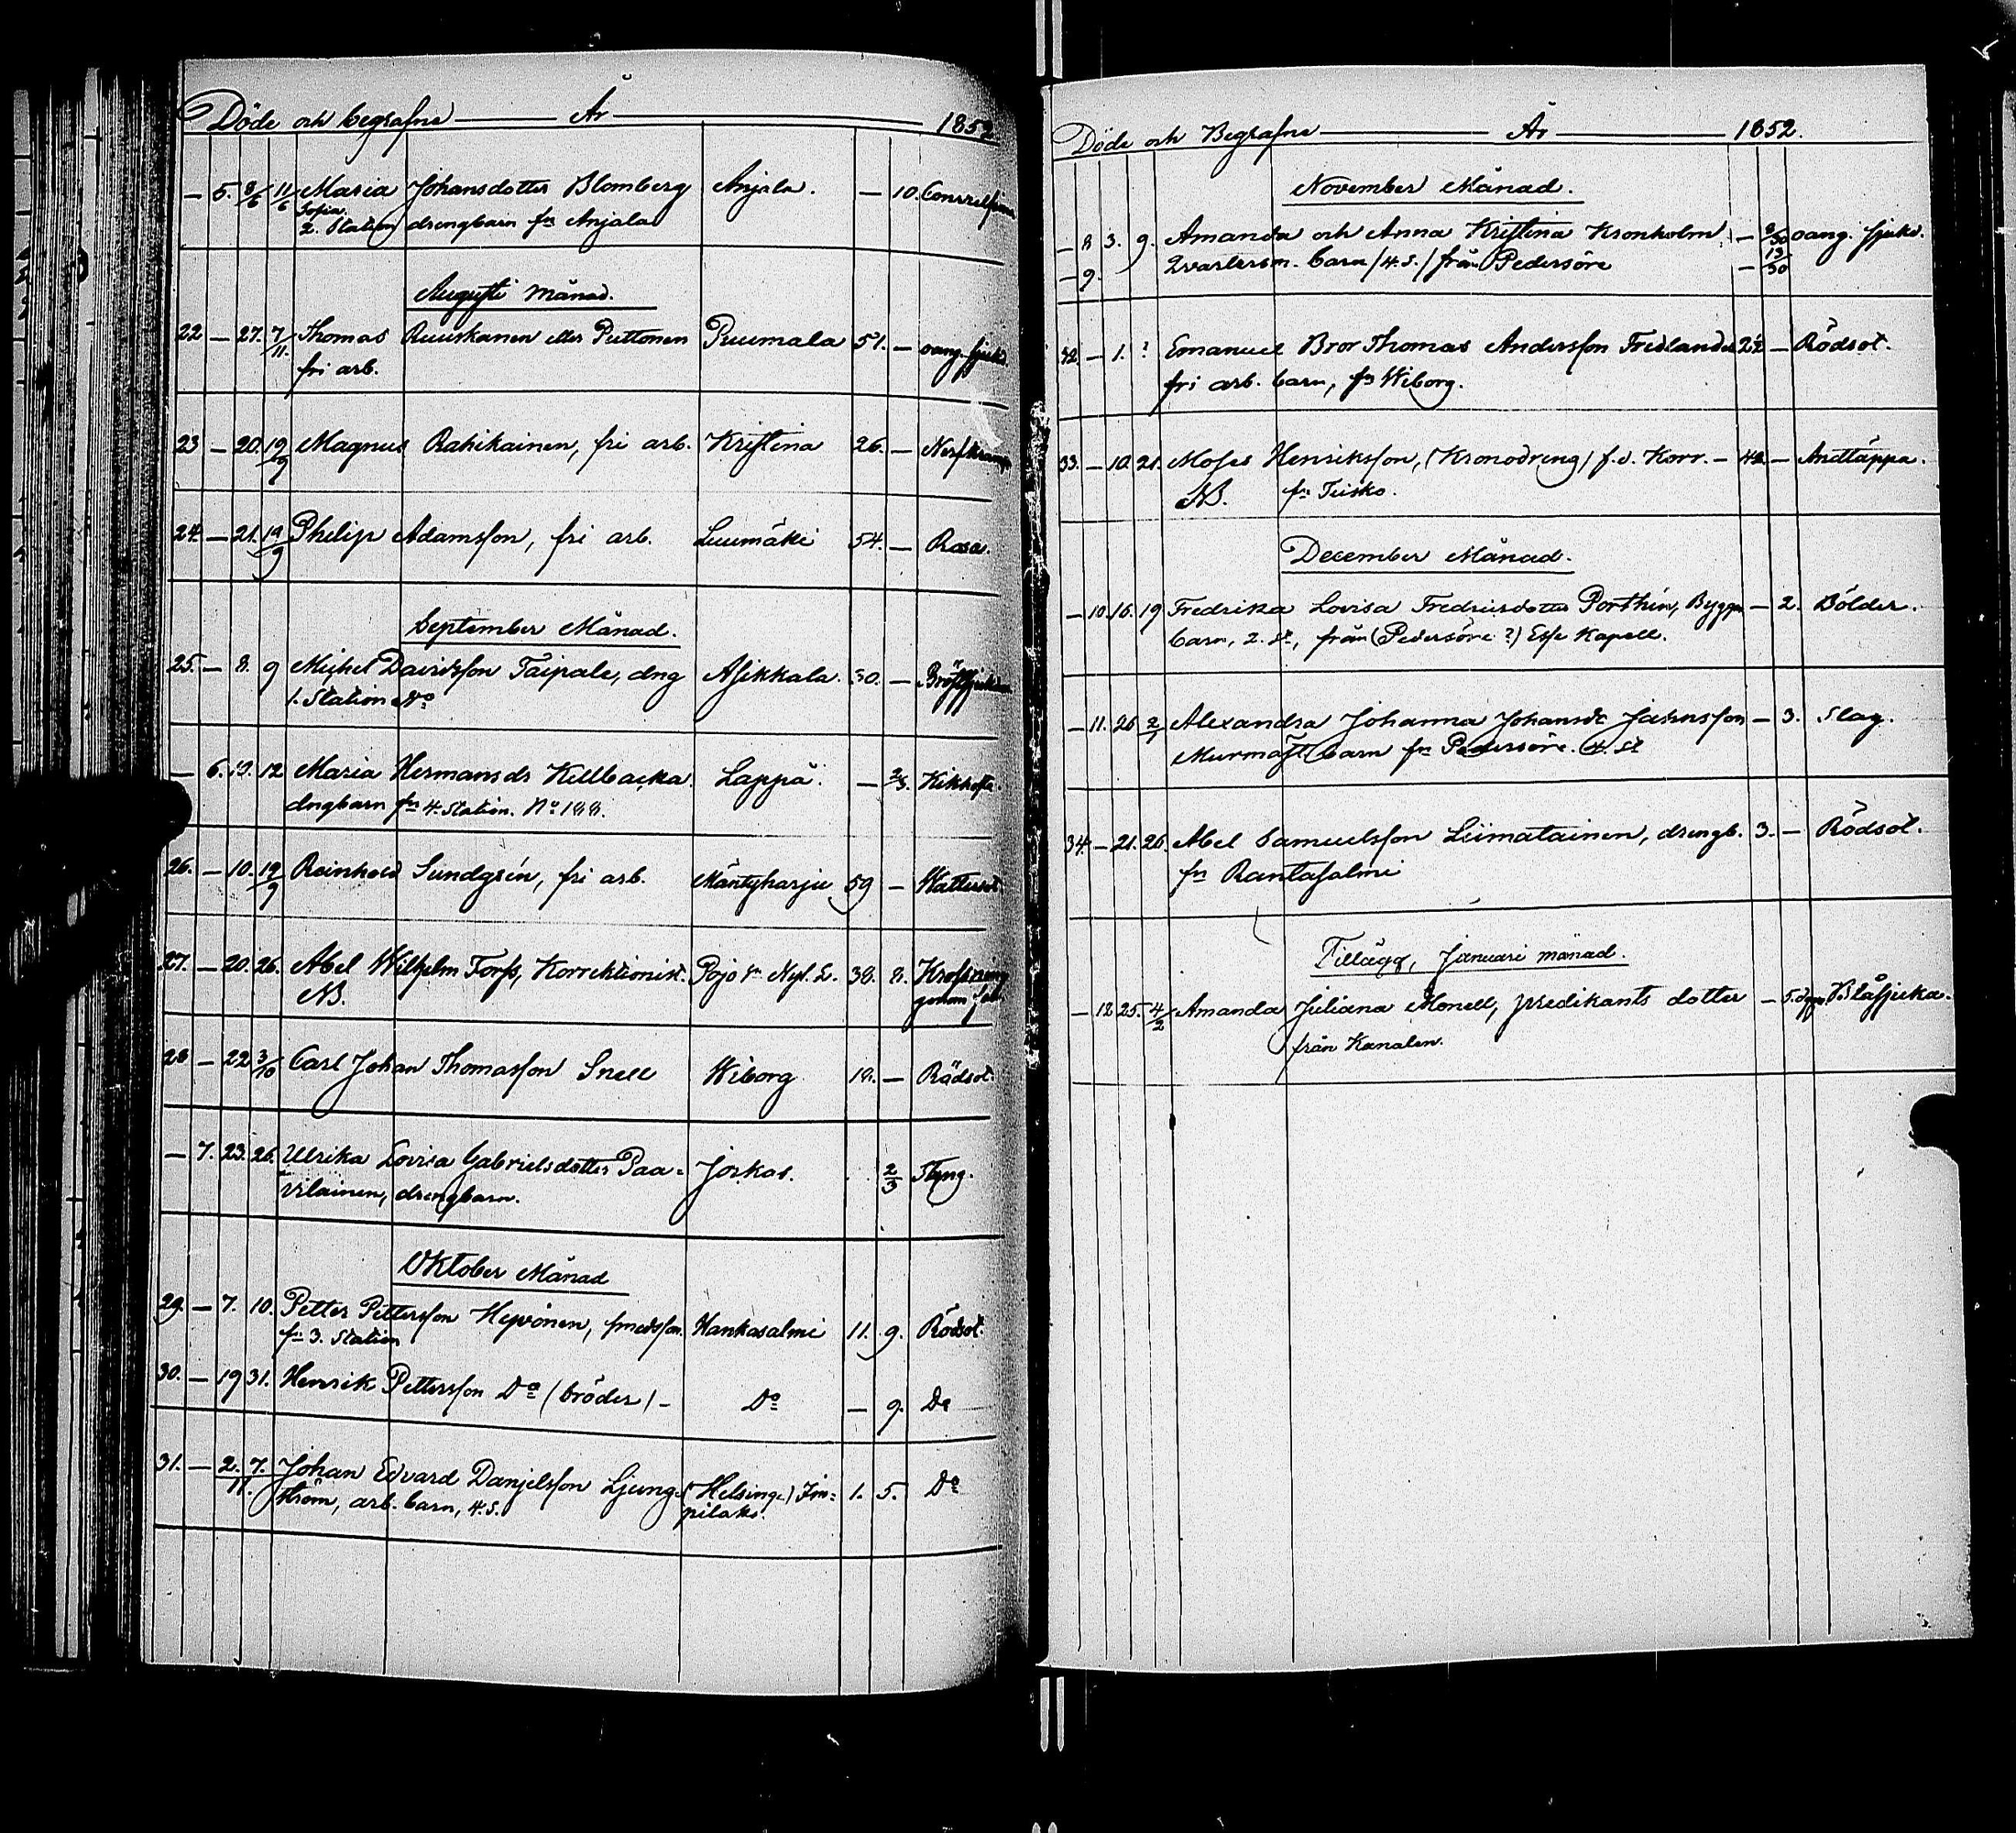 Döde och begrafne — År — 1852
— 5. 8/6 11/6 Maria Johansdotter Blomberg Anjala. — 10.
Sofia
2. Station drengbarn frn Anjala
Augusti Månad.
22 — 27. 7/11. Thomas Ruuskanen eller Puttonen Puumala 51. — oang. sjukd.
fri arb.
23 — 20. 19/9 Magnus Rahikainen, fri arb. Kristina 26. — Nerfkramp
24. — 21. 19/9 Philip Adamsson, fri arb. Luumäki 54. — Rosa.
September Månad.
25. — 8. 9 Michel Davidsson Taipale, dng Asikkala. 30. — Bröstsjukdom
1. Station No
— 6. 10. 12 Maria Hermansdr Killbacka. Lappå. — 2/3. Kikhosta.
dngbarn frn 4. Station. No 188.
26. — 10. 19/9 Reinhold Sundgrén, fri arb. Mäntyharju 59 — Wattersot
27. — 20. 26. Abel Wilhelm Forss, Korrektionist. Pojo sn Nyl. L. 38. 8. Krossning
NB. genom fall
28 — 22 3/10 Carl Johan Thomasson Snell Wiborg 18. — Rödsot.
— 7. 23. 26. Ulrika Lovisa Gabrielsdotter Paa= Jorkas. 2/3 Styng.
vilainen, drengbarn.
Oktober Månad
29. — 7. 10. Petter Pettersson Hyvönen, smedsson. Hankasalmi 11. 9. Rödsot.
frn 3. Station
30. — 19 31. Henrik Pettersson Do (bröder) — Do — 9. Do
31. — 2. 7./11. Johan Edvard Danjelsson Ljung= (Helsinge) Im= 1. 5. Do
ström, arb. barn, 4. S. pilaks.
Döde och Begrafne — År — 1852.
November Månad.
— 8 3. 9. Amanda och Anna Kristina Kronholm, — 8/30 oang. sjukd.
— 9. Qvartersm. barn (4. S.) från Pedersöre — 13/30
32. — 1. ? Emanuel Bror Thomas Andersson Fredlander 2½ — Rödsot.
fri arb. barn, frn Wiborg.
33. — 10. 21. Moses Henriksson, (Kronodreng) f.d. Korr. — 42 — Andtäppa.
NB. frn Tusko.
December Månad.
— 10. 16. 19 Fredrika Lovisa Fredriksdotter Porthén, Byggm — 2. Bölder.
barn, 2. St., från (Pedersöre?) Esse Kapell.
— 11. 26 2/1 Alexandra Johanna Johansdr Jahnsson — 3. Slag.
Murmäst. barn frn Pedersöre. 4. St
34. — 21. 26. Abel Samuelsson Leimatainen, drengb. 3. — Rödsot.
frn Rantasalmi
Tillägg, Januari månad.
— 12 25. 4/2 Amanda Juliana Monell, predikants dotter — 5. dgr Blåsjuka.
från Kanalen.